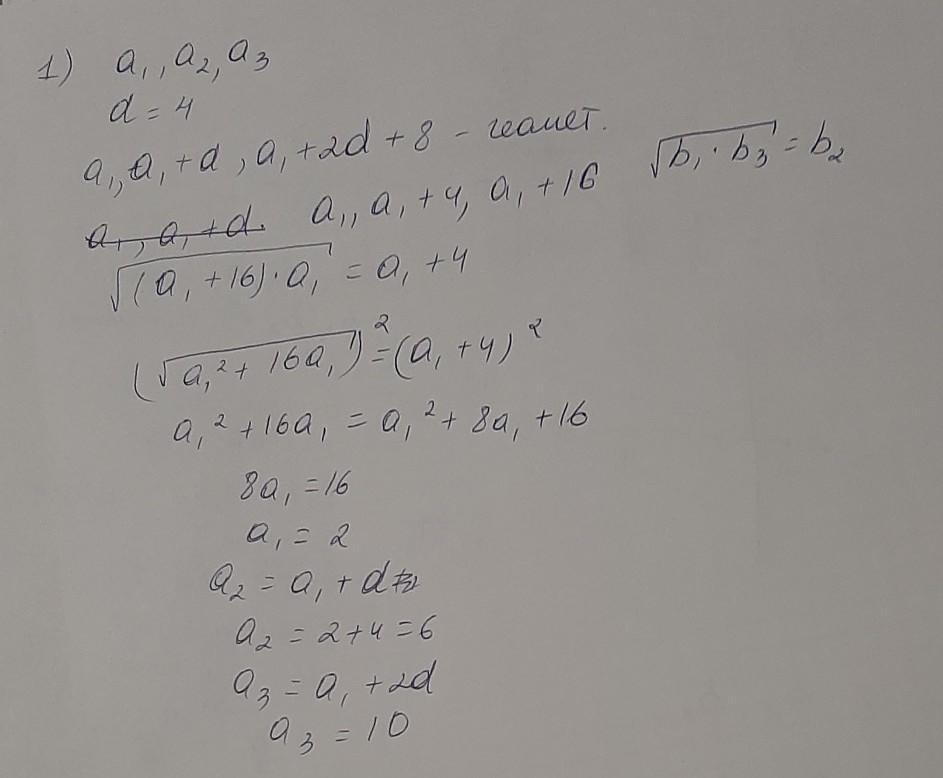 1) a₁, a₂, a₃
d = 4
a₁, a₁ + d, a₁ + 2d + 8 - геомет.
√(b₁ · b₃) = b₂
a₁, a₁ + d. a₁, a₁ + 4, a₁ + 16
√((a₁ + 16) · a₁) = a₁ + 4
(√(a₁² + 16a₁))² = (a₁ + 4)²
a₁² + 16a₁ = a₁² + 8a₁ + 16
8a₁ = 16
a₁ = 2
a₂ = a₁ + d
a₂ = 2 + 4 = 6
a₃ = a₁ + 2d
a₃ = 10